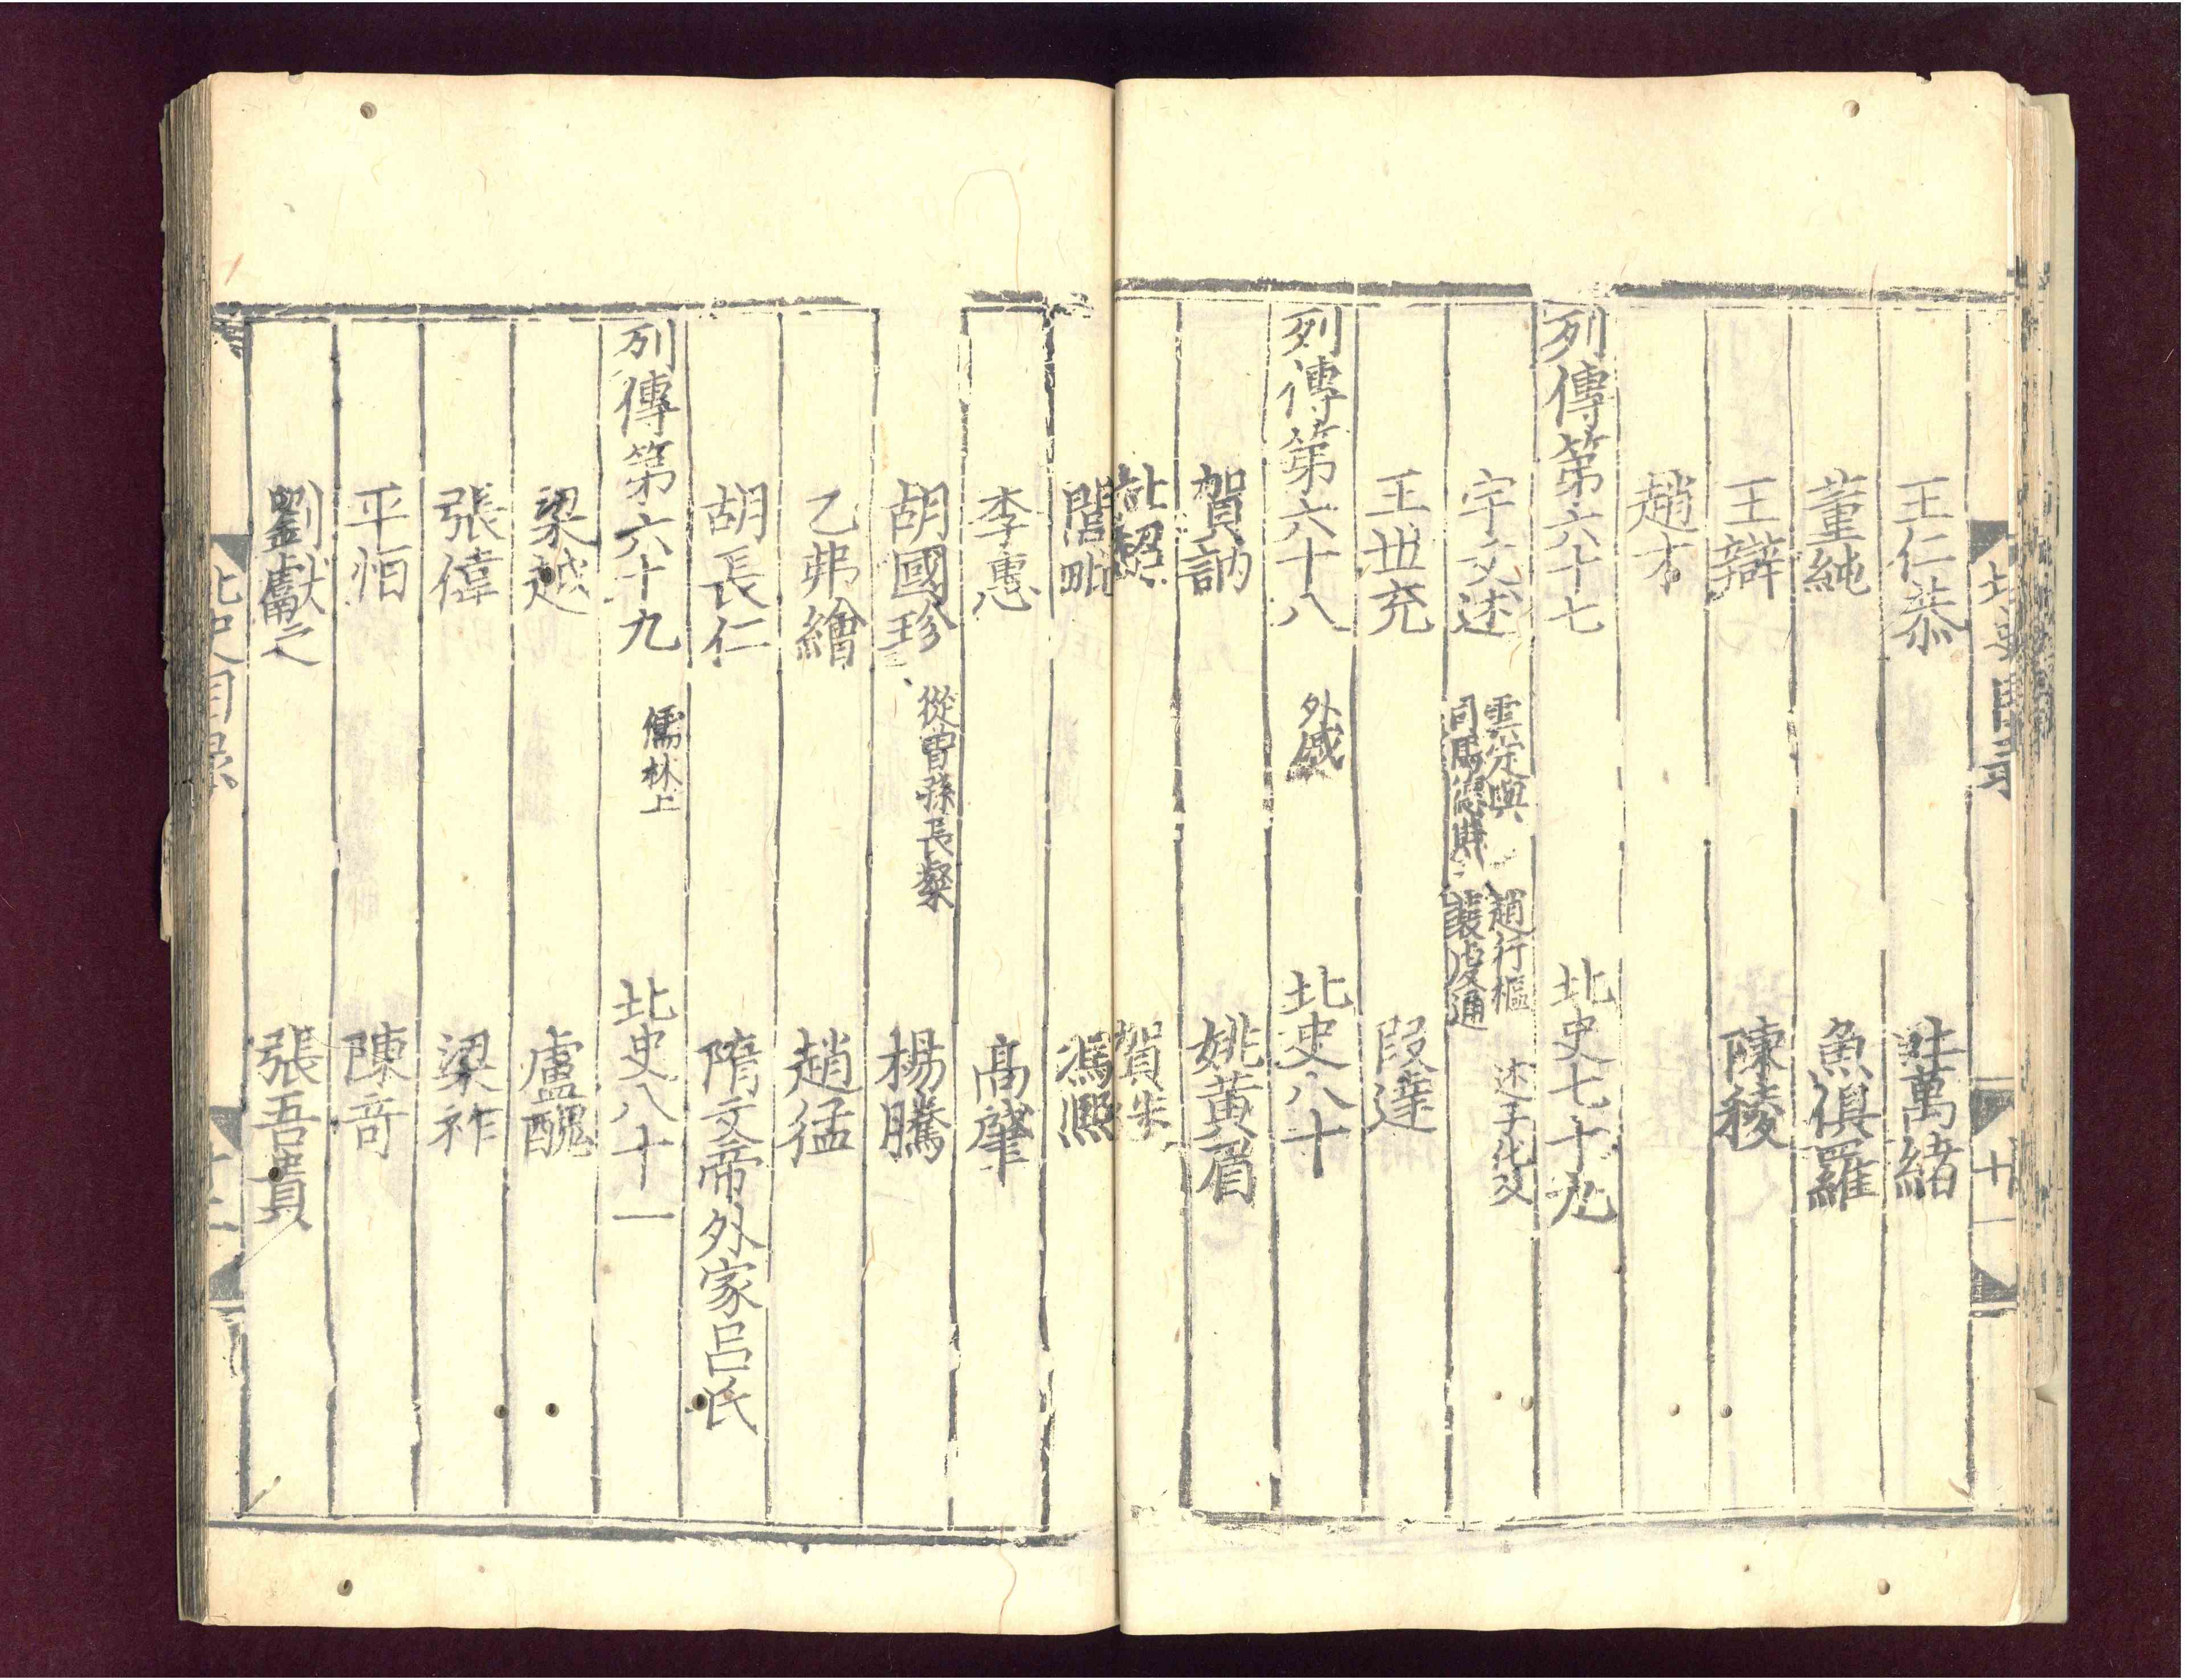 王仁恭　吐萬緒
董純　魚俱羅
王辯　陳稜
趙才
列傳第六十七　北史七十九
宇文述　雲定興　趙行樞　述子化及
司馬德戡　裴虔通
王世充　段達
列傳第六十八　外戚　北史八十
賀訥　姚黃眉
杜超　賀迷
閭毗　馮熙
李惠　高肇
胡國珍　從曾孫長粲　楊騰
乙弗繪　趙猛
胡長仁　隋文帝外家呂氏
列傳第六十九　儒林上　北史八十一
梁越　盧醜
張偉　梁祚
平恒　陳竒
劉獻之　張吾貴
北史目錄　十二